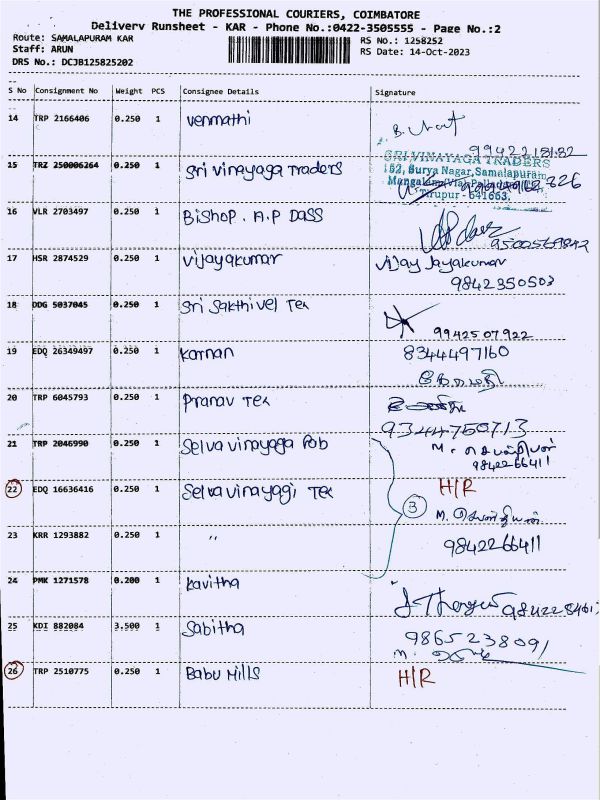 THE PROFESSIONAL COURIERS, COIMBATORE
Delivery Runsheet - KAR - Phone No.:0422-3505555 - Page No.:2
Route: SAMALAPURAM KAR
RS No.: 1258252
Staff: ARUN
RS Date: 14-Oct-2023
DRS No.: DCJB125825202
S No Consignment No Weight PCS Consignee Details Signature
14 TRP 2166406 0.250 1 Venmathi
9942218182
15 TRZ 250006264 0.250 1 Sri Vinayaga Traders
SRI VINAYAGA TRADERS
52, Surya Nagar, Samalapuram
Mangalam (Via) Palladam (Tk)
Tirupur - 641663.
16 VLR 2703497 0.250 1 BISHOP. A.P DASS
9500569842
17 HSR 2874529 0.250 1 Vijayakumar Vijay Jayakumar
9842350503
18 DDG 5037045 0.250 1 Sri Sakthivel Tex
9942507922
19 EDQ 26349497 0.250 1 Karnan 8344497160
20 TRP 6045793 0.250 1 Pranav Tex
9344750713
21 TRP 2046990 0.250 1 Selva vinayaga Fab M.
9842266411
22 EDQ 16636416 0.250 1 Selva vinayagi Tex H/R
3
23 KRR 1293882 0.250 1 " M.
9842266411
24 PMK 1271578 0.200 1 Kavitha
25 KDI 882084 3.500 1 Sabitha
9865238091
M.
26 TRP 2510775 0.250 1 Babu Mills H/R